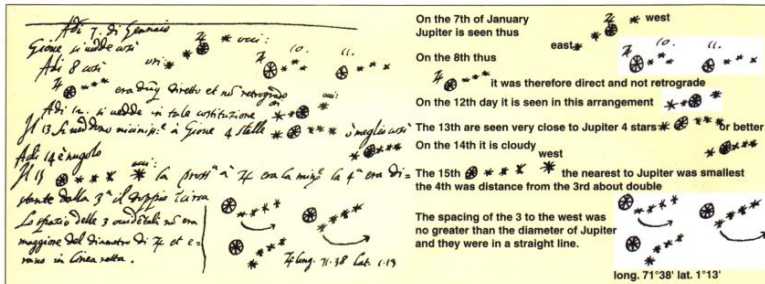 Adi 7. di Gennaio
Gione si uedde così
ori: occi:
Adi 8 così
10. 11.
era dũq diretto et nõ retrogrado
Adi 12. si uedde in tale costituzione
ori occi:
Il 13 si ueddono à Gione 4 stelle ò meglio così
Adi 14 è nugolo
occi:
Il 15 la à era la la 4ª era di=
stante dalla 3ª il doppio
Lo spatio delle 3 nõ era
maggiore del diametro di et e=
rano in linea retta.
long. 71.38 lat. 1.13
On the 7th of January
Jupiter is seen thus
west
east
On the 8th thus
10. 11.
it was therefore direct and not retrograde
On the 12th day it is seen in this arrangement
The 13th are seen very close to Jupiter 4 stars or better
On the 14th it is cloudy
west
The 15th the nearest to Jupiter was smallest
the 4th was distance from the 3rd about double
The spacing of the 3 to the west was
no greater than the diameter of Jupiter
and they were in a straight line.
long. 71°38' lat. 1°13'